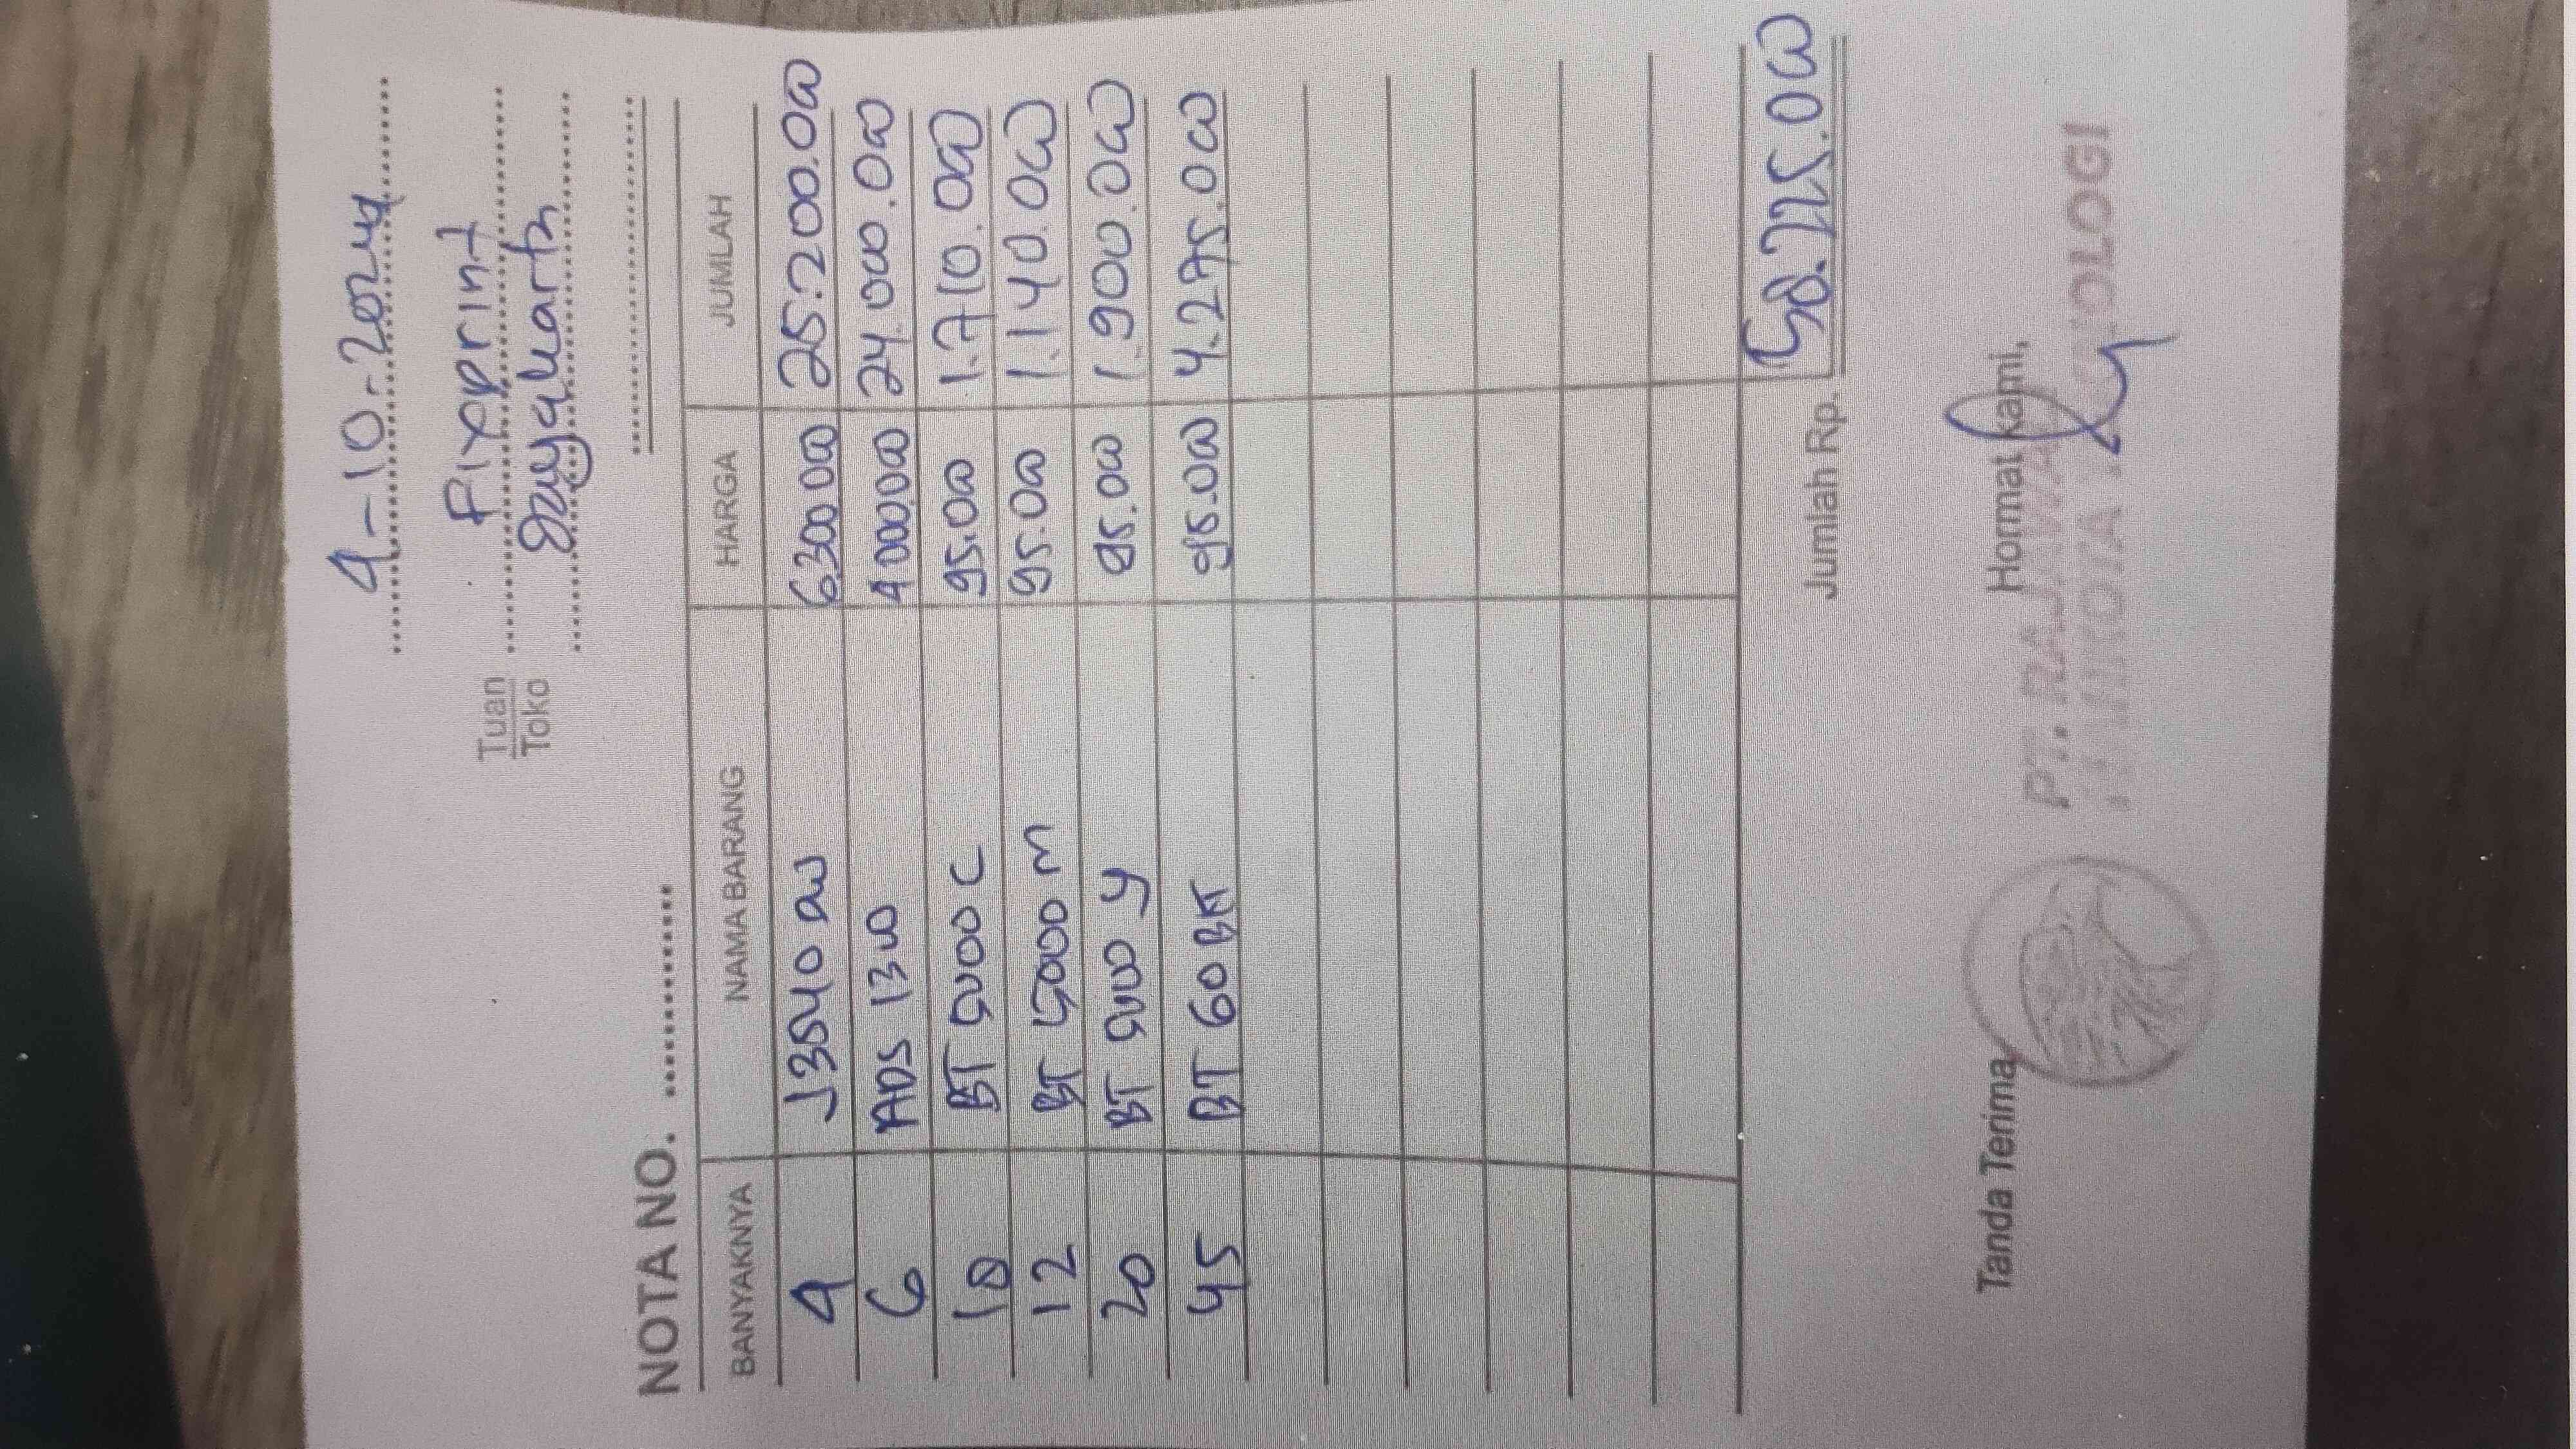 4-10-2024
Tuan Fixprint
Toko Jayakarta
NOTA NO.
BANYAKNYA NAMA BARANG HARGA JUMLAH
4 J3540 aw 6.300.000 25.200.000
6 ADS 1300 4.000.000 24.000.000
18 BT 5000 C 95.000 1.710.000
12 BT 5000 M 95.000 1.140.000
20 BT 5000 Y 95.000 1.900.000
45 BT 60 BK 95.000 4.275.000
Jumlah Rp. 58.225.000
Tanda Terima Hormat kami,
PT. RAJAWALI